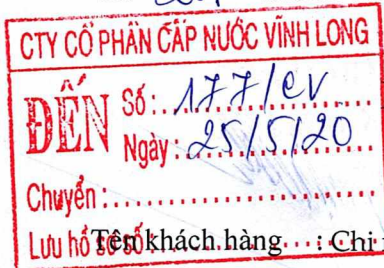 CTY CỔ PHẦN CẤP NƯỚC VĨNH LONG
ĐẾN
Số: 177/CV
Ngày: 25/5/20
Chuyển:
Lưu hồ sơ số:
Tên khách hàng : Chi